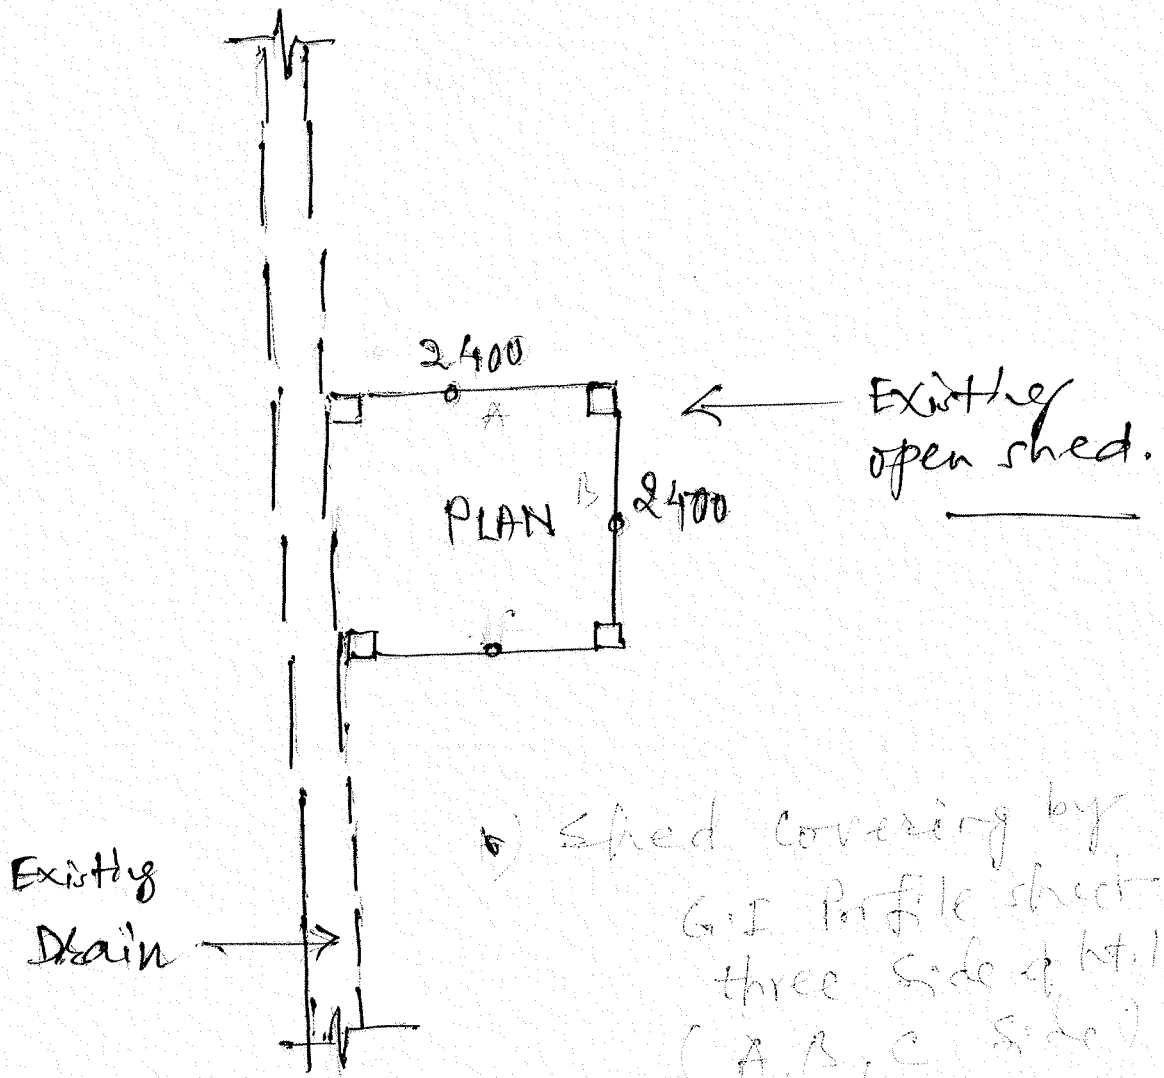 2400
A
Existing
open shed.
B 2400
PLAN
C
Existing
Drain
) Shed covering by
G.I Profile sheet
three side of ht.
(A, B, C Side)